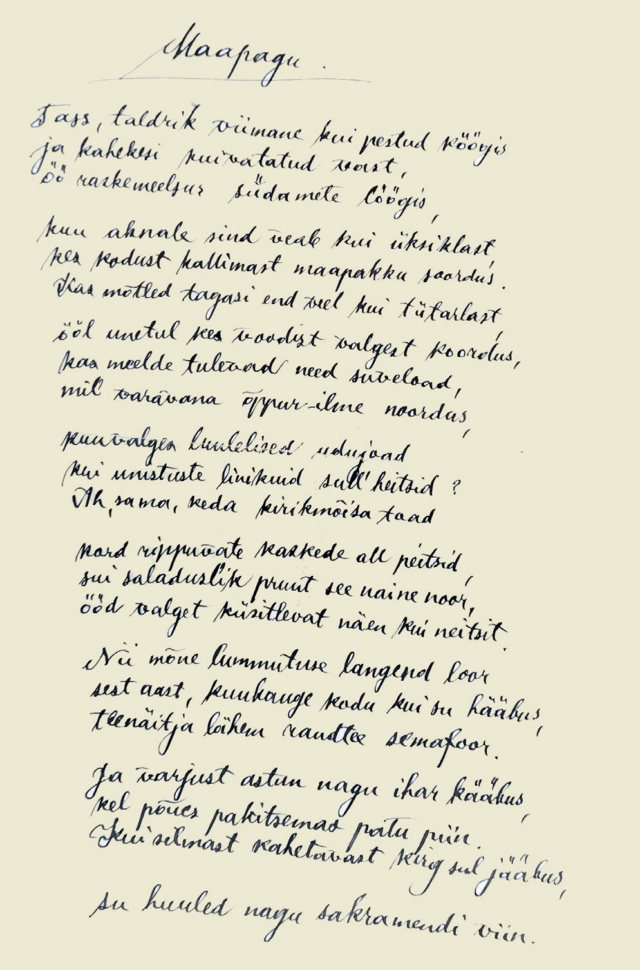 Maapagu.
Tass, taldrik viimane kui pestud köögis
ja kahekesi kuivatatud vast,
öö raskemeelsur südamete löögis,
kuu aknale sind veab kui üksiklast,
kes kodust kallimast maapakku soordus.
Kas mõtled tagasi end veel kui tütarlast,
ööl unetul kes voodist valgest koordus,
kas meelde tulevad need suveload,
mil varavana õppur-ilme noordus,
kuuvalges luulelised udujoad
kui unistuste linikuid sull' heitsid?
Ah, sama, keda kirikmõisa toad
kord rippuvate kaskede all peitsid,
sui saladuslik pruut see naine noor,
ööd valget küsitlevat näen kui neitsit.
Nii mõne lummutuse langend loor
sest aast, kuukauge kodu kui su hääbus,
teenäitja lähem raudtee semafoor.
Ja varjust astun nagu ihar kääbus,
kel põues pakitsemas patu piin.
Kui silmast kahetavast kirg sul jääbus,
su huuled nagu sakramendi viin.